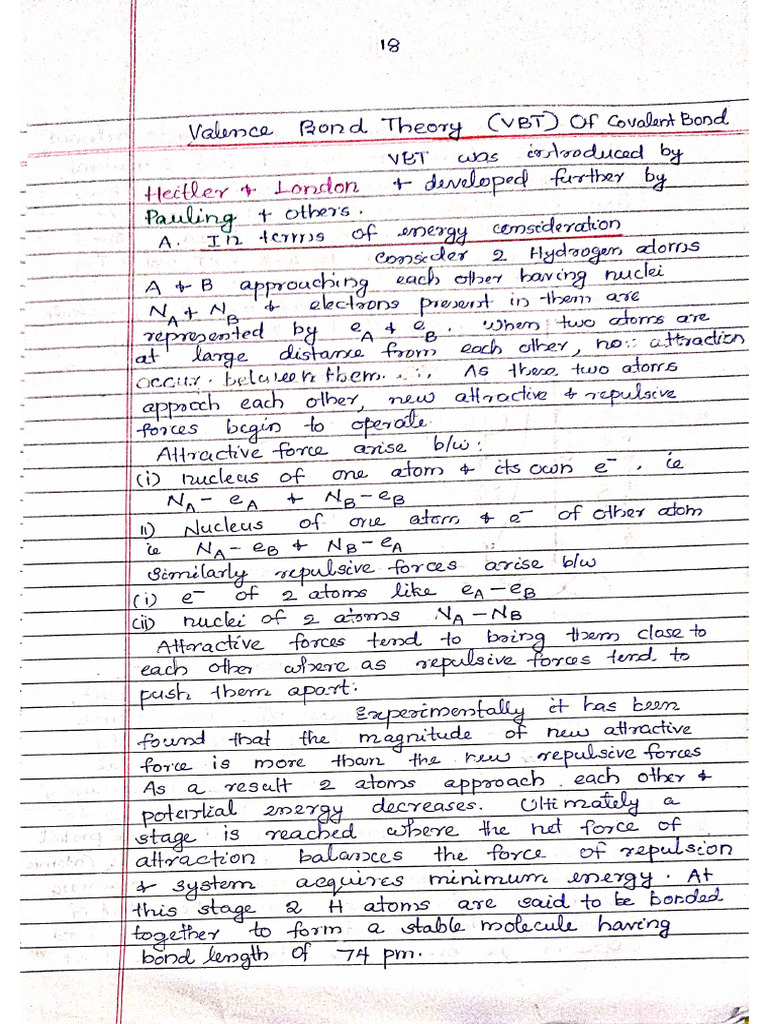 18
Valence Bond Theory (VBT) Of Covalent Bond
VBT was introduced by
Heitler & London & developed further by
Pauling & others.
A. In terms of energy consideration
Consider 2 Hydrogen atoms
A & B approaching each other having nuclei
N_A & N_B & electrons present in them are
represented by e_A & e_B. When two atoms are
at large distance from each other, no attraction
occur between them. As these two atoms
approch each other, new attractive & repulsive
forces begin to operate.
Attractive force arise b/w:
(i) nucleus of one atom & its own e⁻. ie
N_A - e_A & N_B - e_B
ii) Nucleus of one atom & e⁻ of other atom
ie N_A - e_B & N_B - e_A
Similarly repulsive forces arise b/w
(i) e⁻ of 2 atoms like e_A - e_B
(ii) nuclei of 2 atoms N_A - N_B
Attractive forces tend to bring them close to
each other where as repulsive forces tend to
push them apart.
Experimentally it has been
found that the magnitude of new attractive
force is more than the new repulsive forces
As a result 2 atoms approach each other &
potential energy decreases. Ultimately a
stage is reached where the net force of
attraction balances the force of repulsion
& system acequires minimum energy. At
this stage 2 H atoms are said to be bonded
together to form a stable molecule having
bond length of 74 pm.